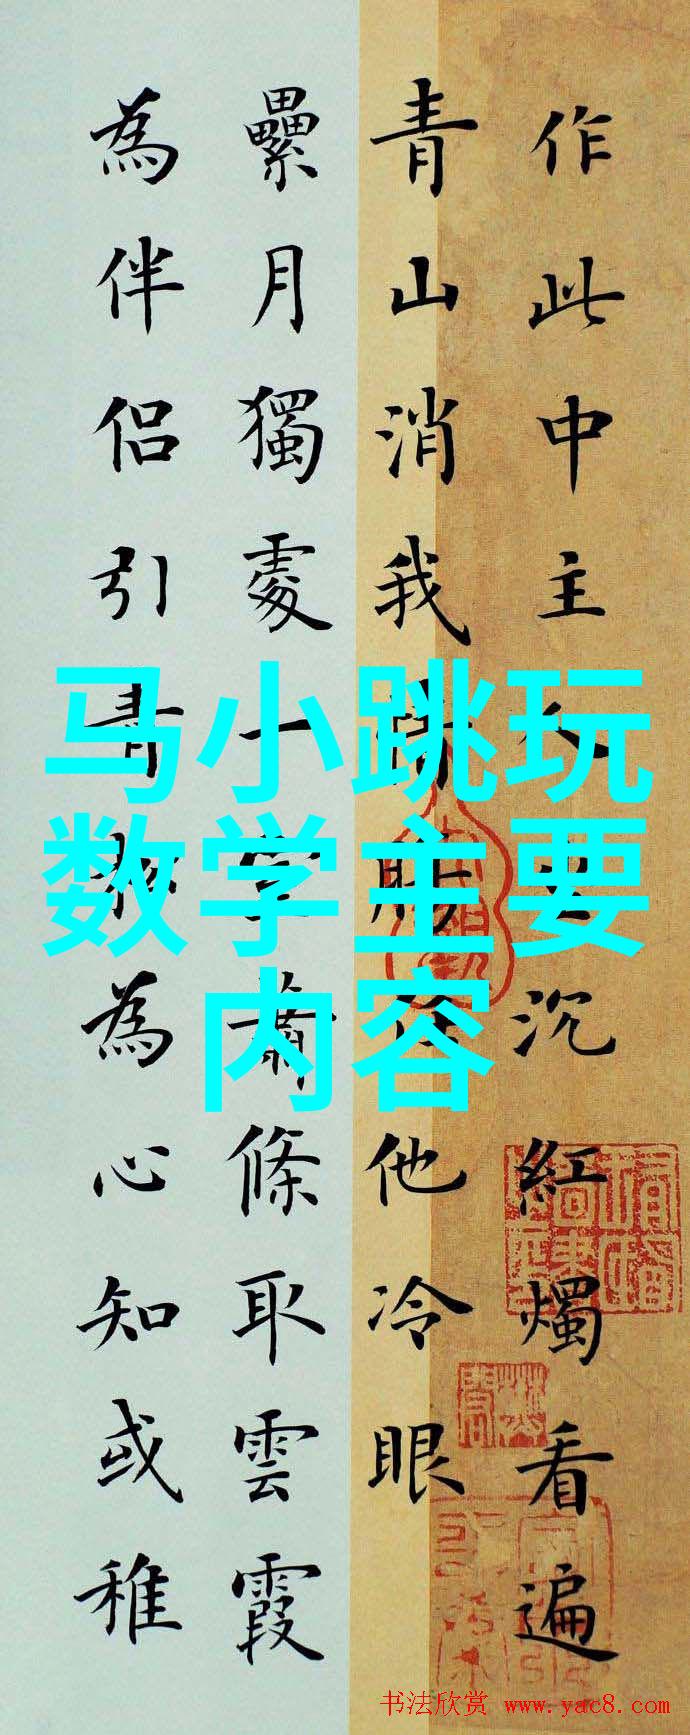 作此中主人士沉紅燭看遍
青山消我情腸任他冷眼
纍月獨處一室蕭條取雲霞
為伴侣引青松為心知或稚
马小跳玩
数学主要
内容
书法欣赏 www.yac8.com